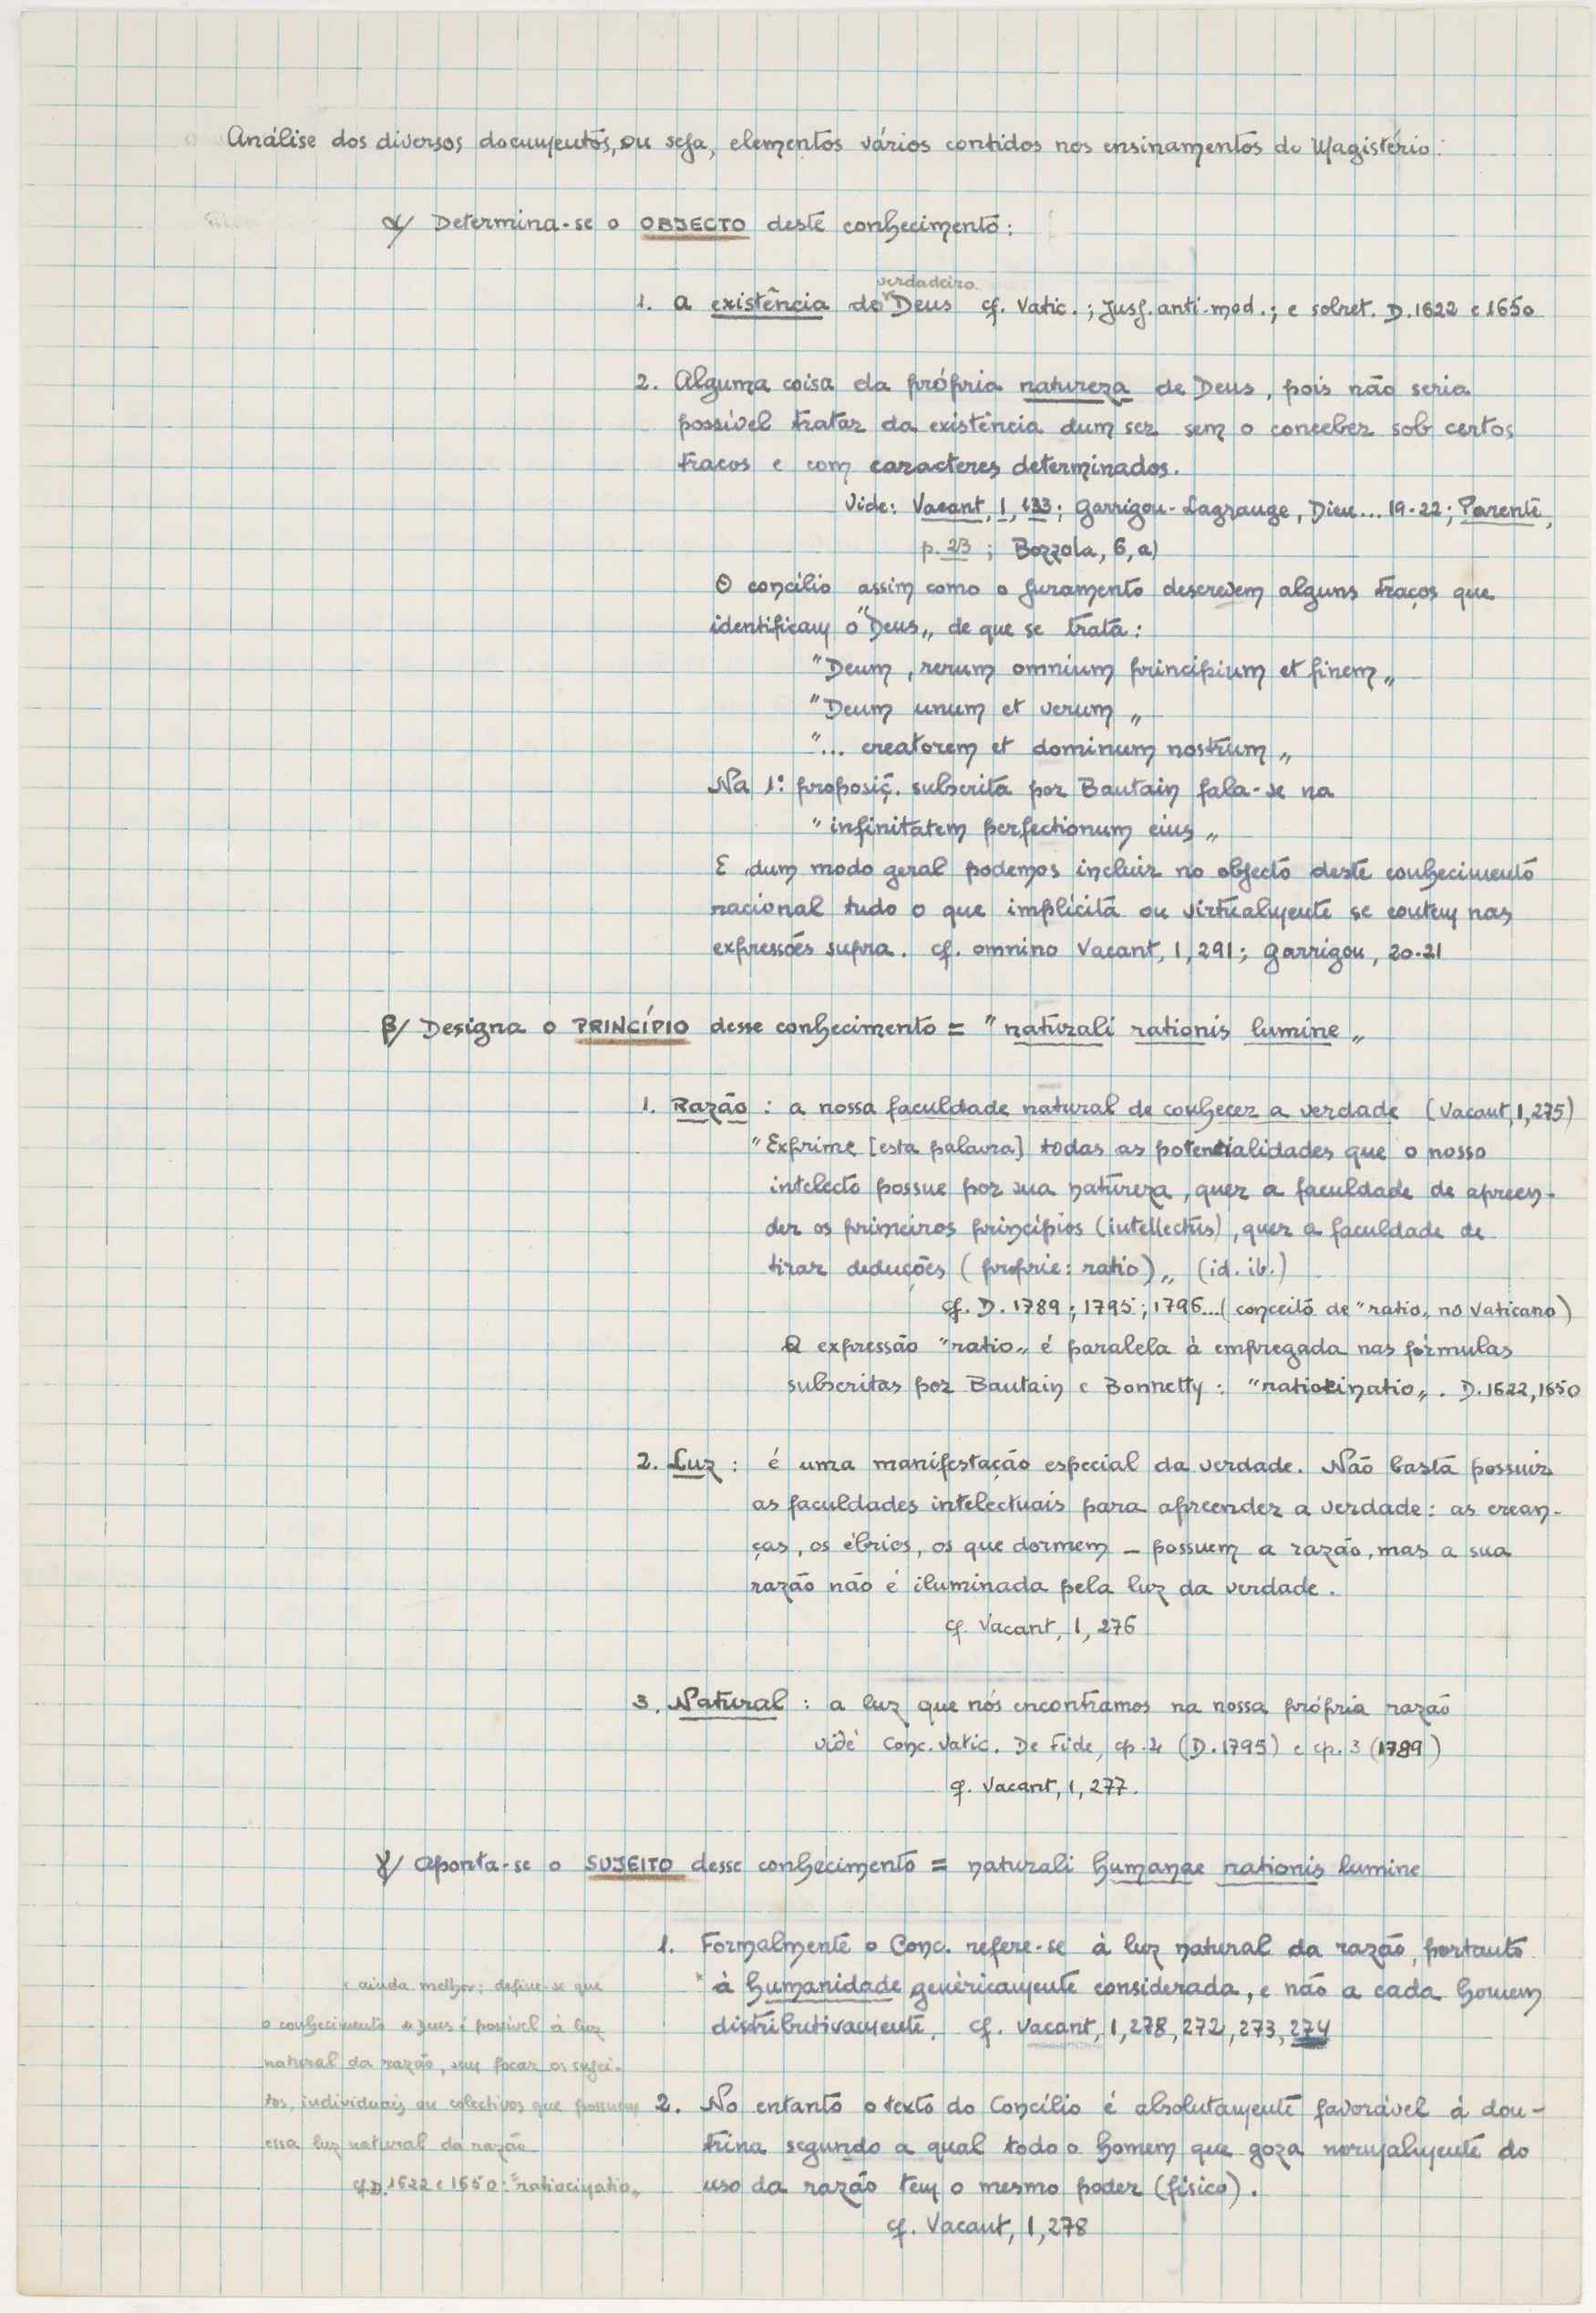 Análise dos diversos documentos, ou seja, elementos vários contidos nos ensinamentos do Magistério:
α/ Determina-se o OBJECTO deste conhecimento:
verdadeiro
1. a existência do Deus cf. Vatic.; Jusj. anti-mod.; e sobret. D. 1622 e 1650
2. Alguma coisa da própria natureza de Deus, pois não seria
possível tratar da existência dum ser sem o conceber sob certos
traços e com caracteres determinados.
Vide: Vacant, 1, 133; Garrigou-Lagrange, Dieu... 19-22; Parente,
p. 23; Bozzola, 6, a)
O concílio assim como o juramento descrevem alguns traços que
identificam o "Deus„ de que se trata:
"Deum, rerum omnium principium et finem„
"Deum unum et verum„
"... creatorem et dominum nostrum„
Na 1ª proposiç. subscrita por Bautain fala-se na
"infinitatem perfectionum eius„
E dum modo geral podemos incluir no objecto deste conhecimento
racional tudo o que implícita ou virtualmente se contem nas
expressões supra. cf. omnino Vacant, 1, 291; Garrigou, 20-21
β/ Designa o PRINCÍPIO desse conhecimento = "naturali rationis lumine„
1. Razão: a nossa faculdade natural de conhecer a verdade (Vacant, 1, 275)
"Exprime [esta palavra] todas as potencialidades que o nosso
intelecto possue por sua natureza, quer a faculdade de apreen-
der os primeiros princípios (intellectus), quer a faculdade de
tirar deduções (proprie: ratio)„ (id. ib.)
cf. D. 1789; 1795; 1796... (conceito de "ratio„ no Vaticano)
A expressão "ratio„ é paralela à empregada nas fórmulas
subscritas por Bautain e Bonnetty: "ratiocinatio„. D. 1622, 1650
2. Luz: é uma manifestação especial da verdade. Não basta possuir
as faculdades intelectuais para apreender a verdade: as crean-
ças, os ébrios, os que dormem – possuem a razão, mas a sua
razão não é iluminada pela luz da verdade.
cf. Vacant, 1, 276
3. Natural: a luz que nós encontramos na nossa própria razão
vide Conc. Vatic. De Fide, cp. 4 (D. 1795) e cp. 3 (1789)
cf. Vacant, 1, 277.
γ/ Aponta-se o SUJEITO desse conhecimento = naturali humanae rationis lumine
1. Formalmente o Conc. refere-se à luz natural da razão, portanto
* à humanidade genèricamente considerada, e não a cada homem
distributivamente. cf. Vacant, 1, 278, 272, 273, 274
* ainda melhor: define-se que
o conhecimento de Deus é possível à luz
natural da razão, sem focar os sujei-
tos, individuais ou colectivos que possuem
essa luz natural da razão
cf. D. 1622 e 1650: "ratiocinatio„
2. No entanto o texto do Concílio é absolutamente favorável à dou-
trina segundo a qual todo o homem que goza normalmente do
uso da razão tem o mesmo poder (físico).
cf. Vacant, 1, 278